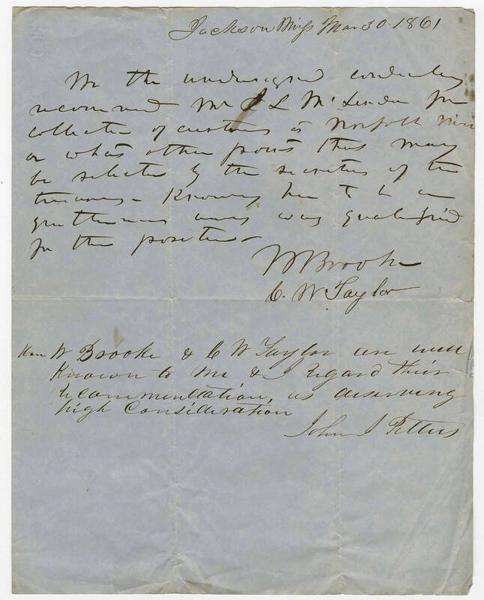 Jackson Miss Mar 30. 1861
We the undersigned cordially
recommend Mr J L McLendon for
collector of customs at Norfolk Miss
or what other point thus may
be selected by the secretary of the
treasury - Knowing him to be a
gentleman every way qualified
for the position -
W Brooke
C. W Taylor
Hon W Brooke & C W Taylor are well
Known to me & I regard their
recommendation, as deserving
high Consideration
John J Pettus